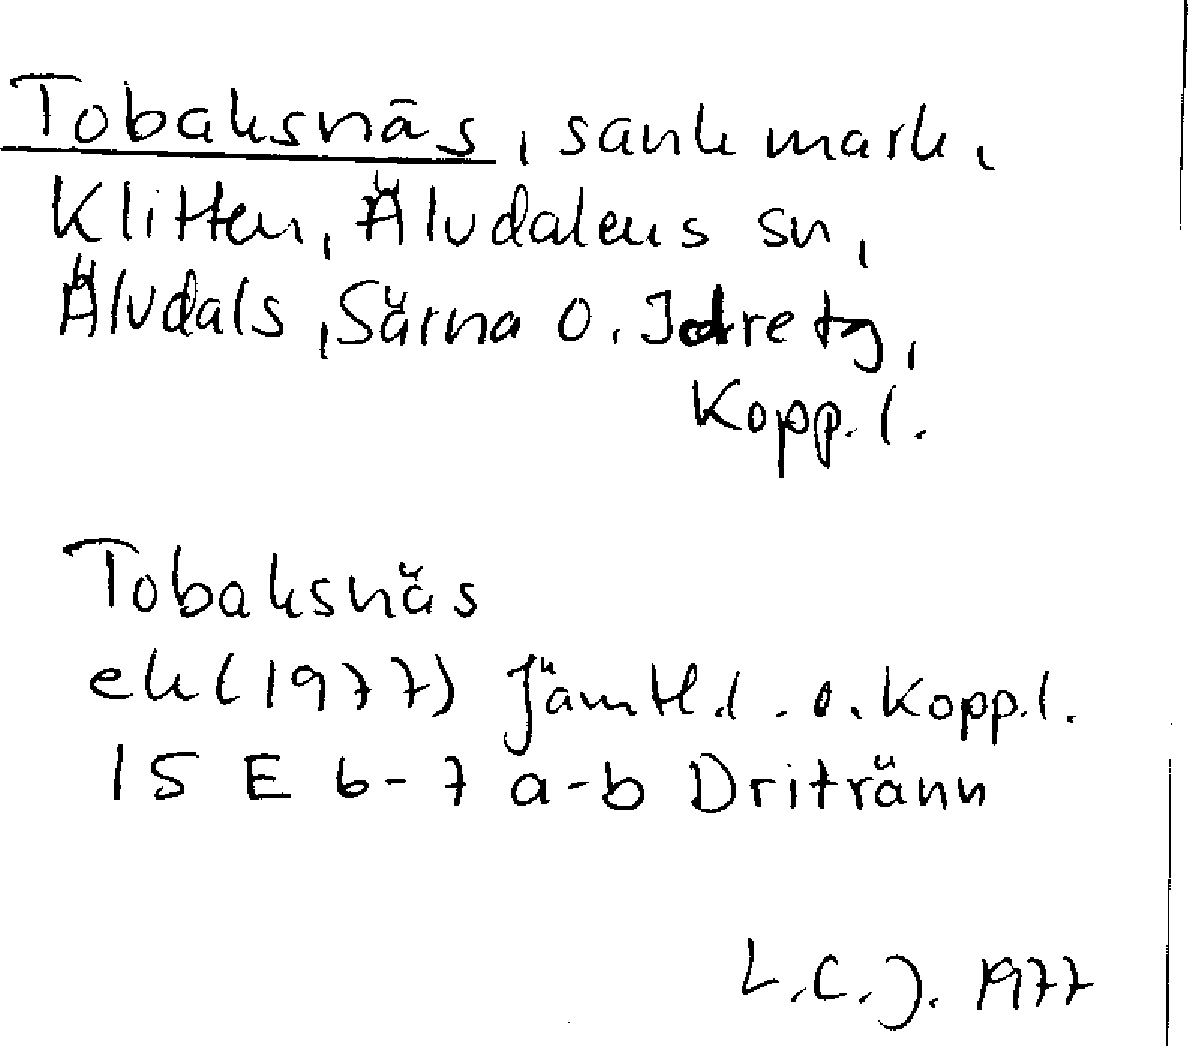 Tobaksnäs, sank mark,
Klitten, Älvdalens sn,
Älvdals, Särna o. Idre tg,
Kopp. l.
Tobaksnäs
ek (1977) Jämtl.l. o. Kopp.l.
15 E 6-7 a-b Dritränn
L.C.J. 1977